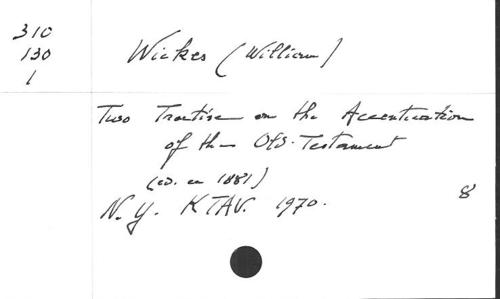 310
130
1
Wickes (William)
Two Treatise on the Accentuation
of the Old-Testament
(ed. en 1881)
N.Y. KTAV. 1970.
8